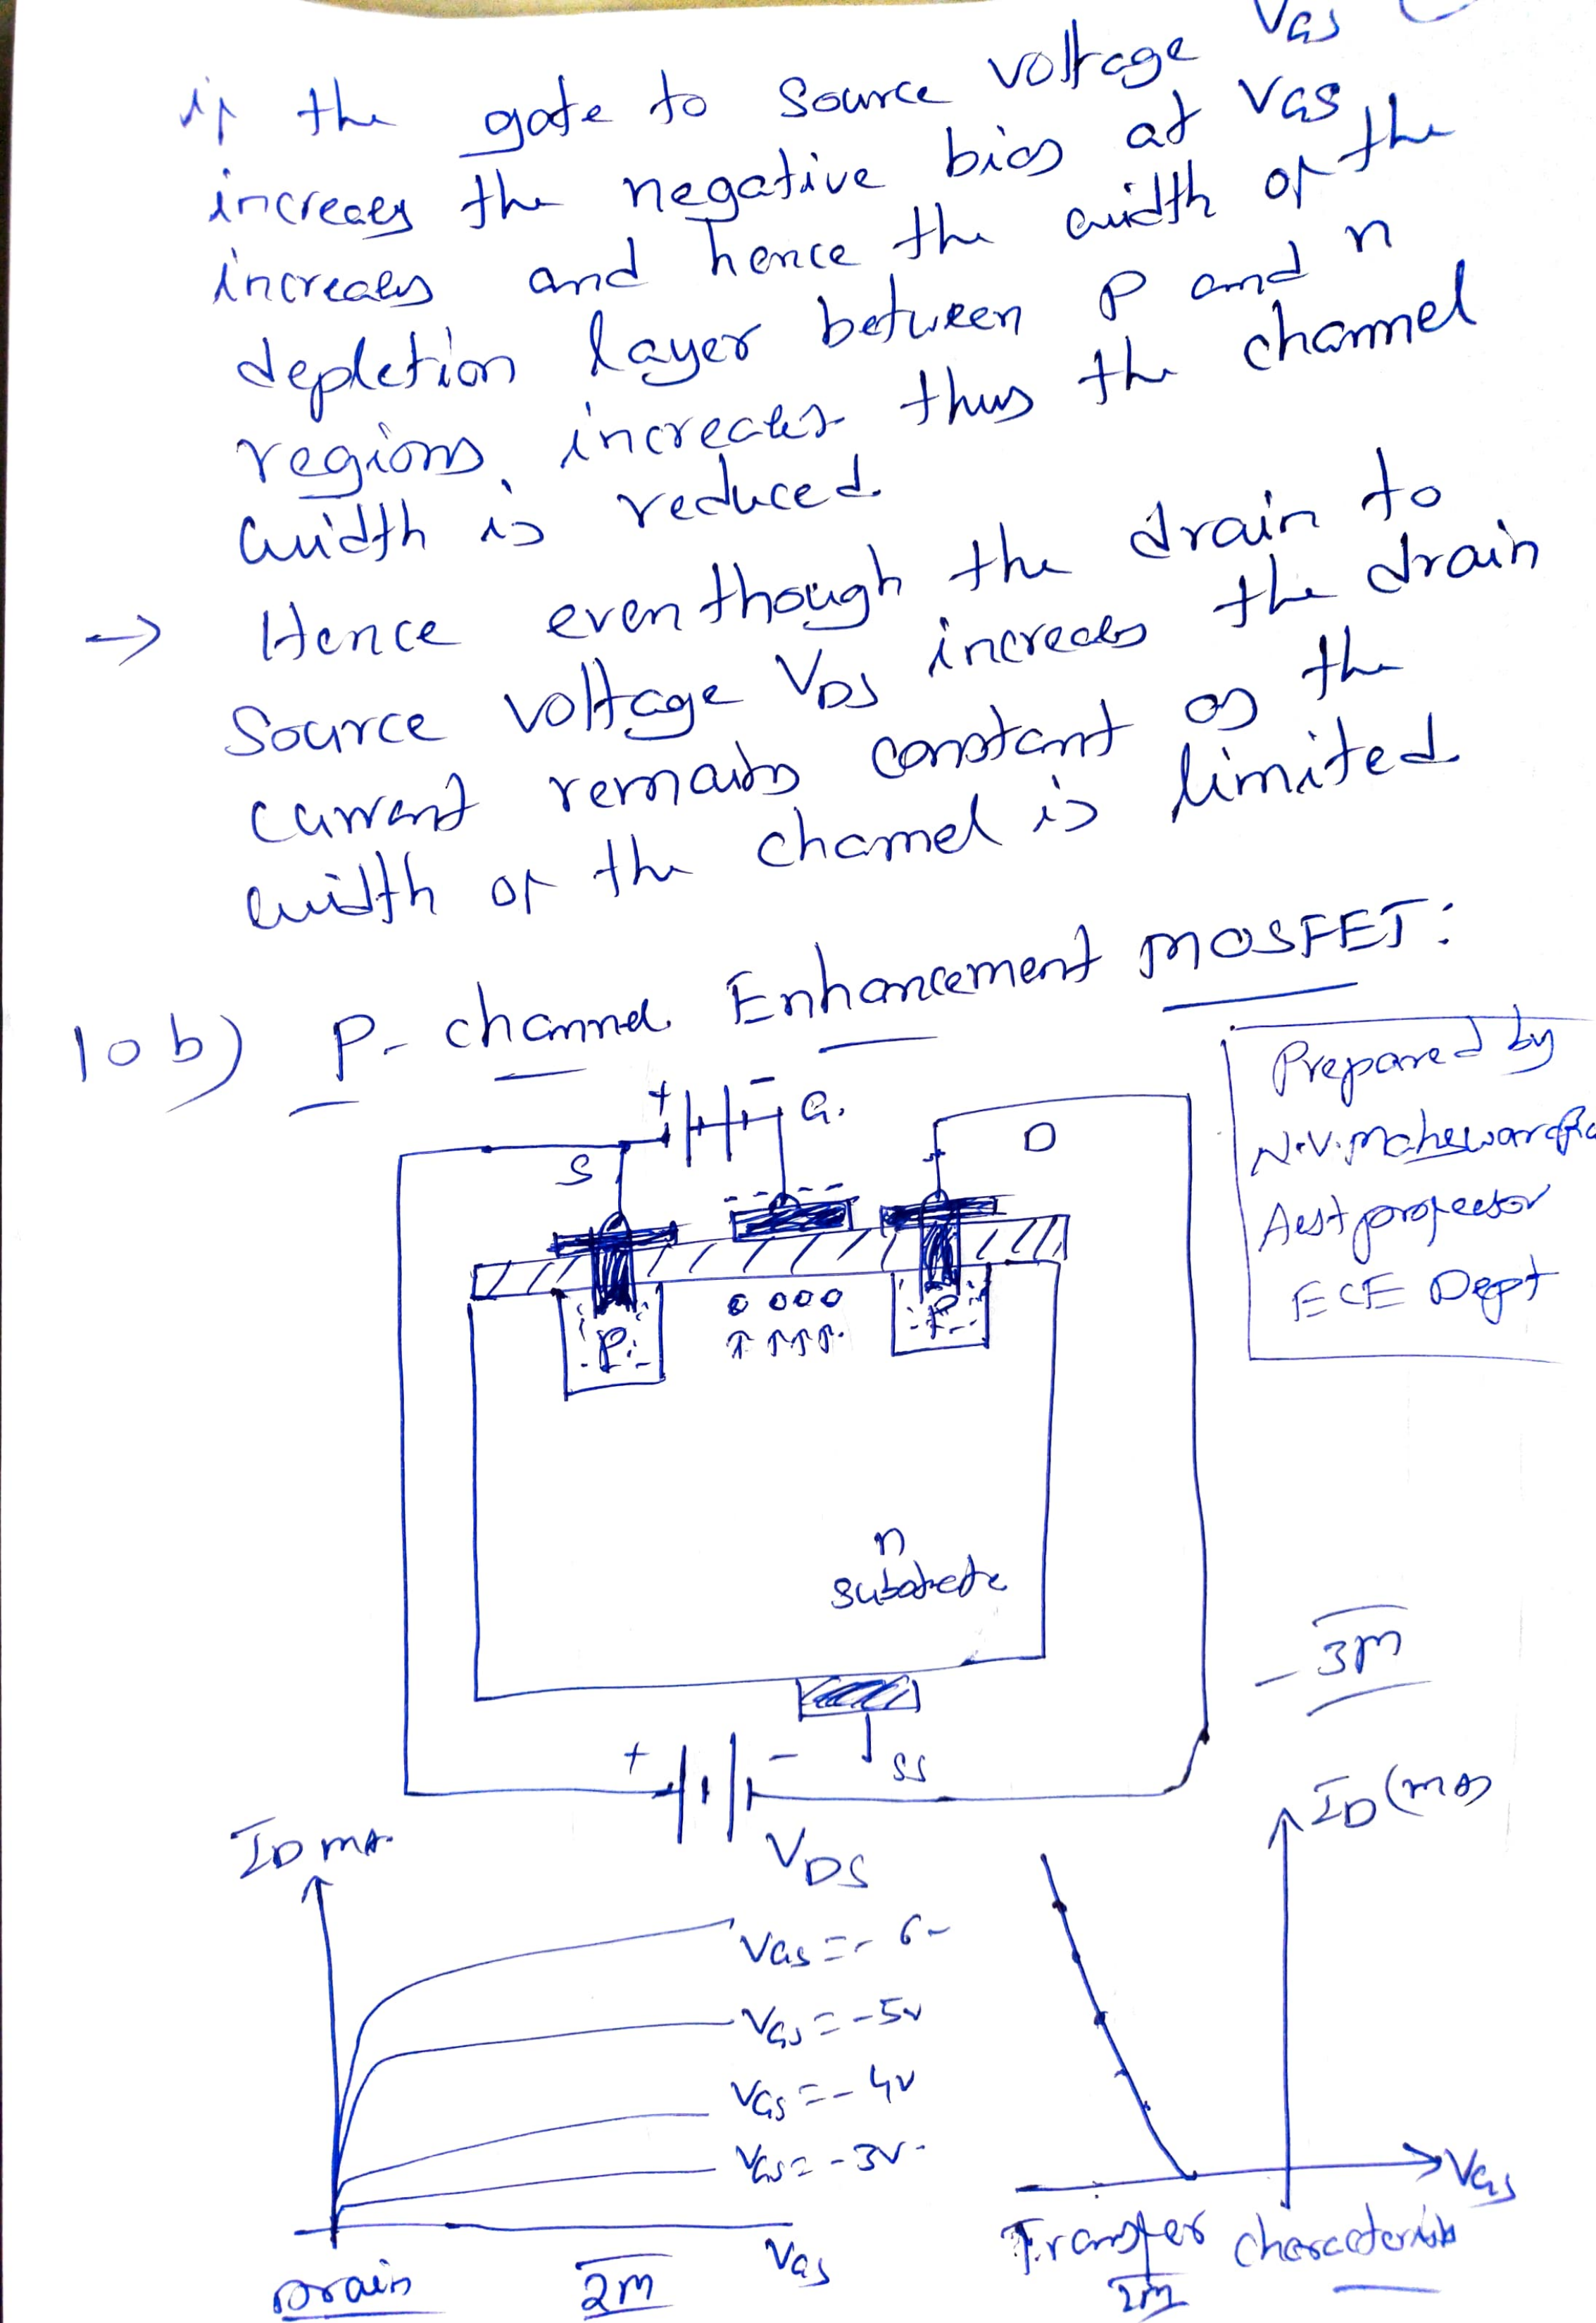 VGS
if the gate to source voltage
increases the negative bias at VGS
increases and hence the width of the
depletion layer between p and n
regions increases thus the channel
width is reduced.
→ Hence eventhough the drain to
source voltage VDS increases the drain
current remains constant as the
width of the channel is limited
10b) P-channel Enhancement MOSFET:
Prepared by
Asst professor
ECE Dept
+ - G.
S
D
P
P
n
substrate
- 3M
+ -
SS
VDS
ID mA.
VGS = - 6-
VGS = -5v
VGS = -4v
VGS = -3v.
VGS
Drain
2M
ID (mA)
VGS
Transfer characteristics
2M